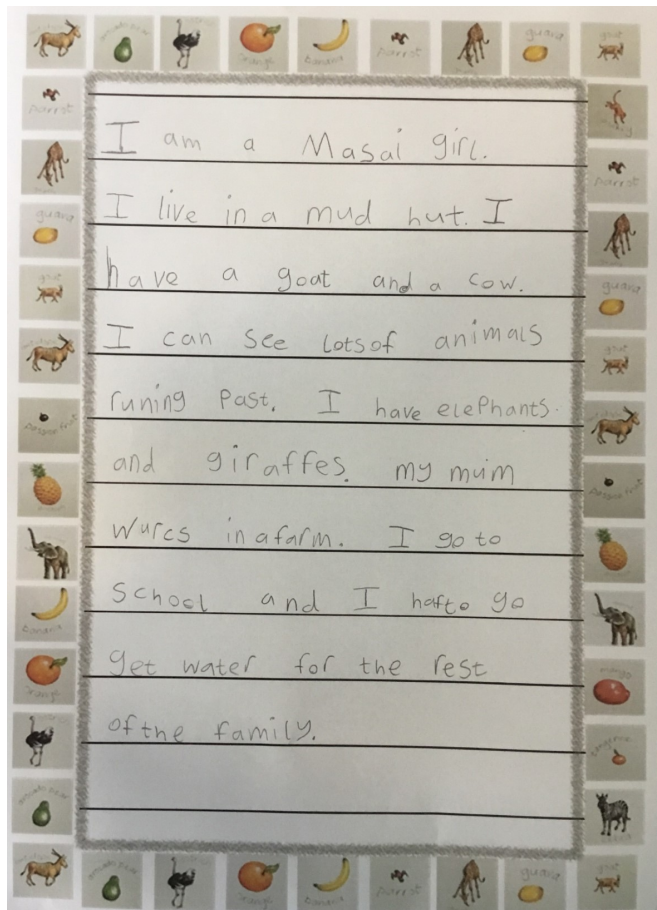 I am a Masai girl.
I live in a mud hut. I
have a goat and a cow.
I can see lotsof animals
runing Past. I have elePhants.
and giraffes. my mum
wurcs in a farm. I go to
School and I hafto go
get water for the rest
of the family.
avocado pear
orange
banana
parrot
guava
goat
parrot
guava
goat
passion fruit
banana
orange
avocado pear
parrot
guava
goat
passion fruit
mango
tangerine
avocado pear
orange
banana
parrot
guava
goat